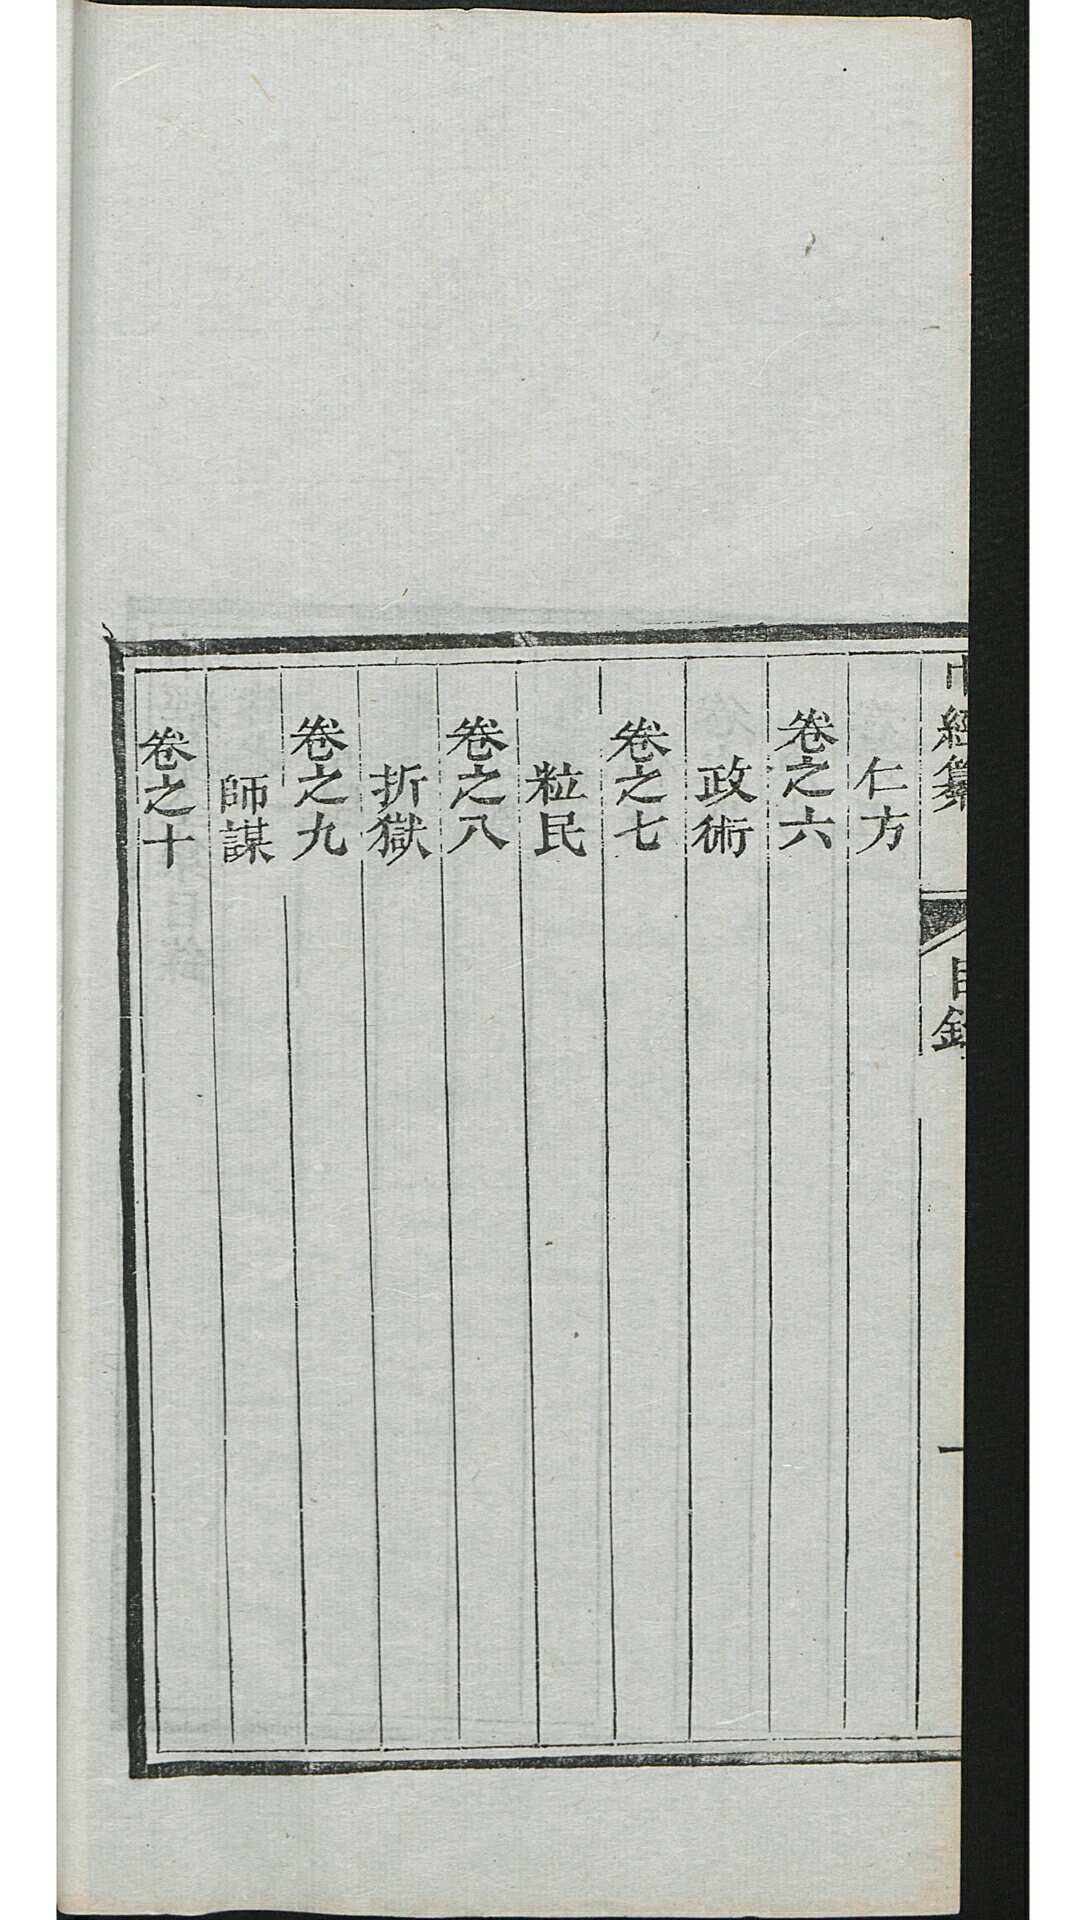 經纂
目錄
一
仁方
卷之六
政術
卷之七
粒民
卷之八
折獄
卷之九
師謀
卷之十